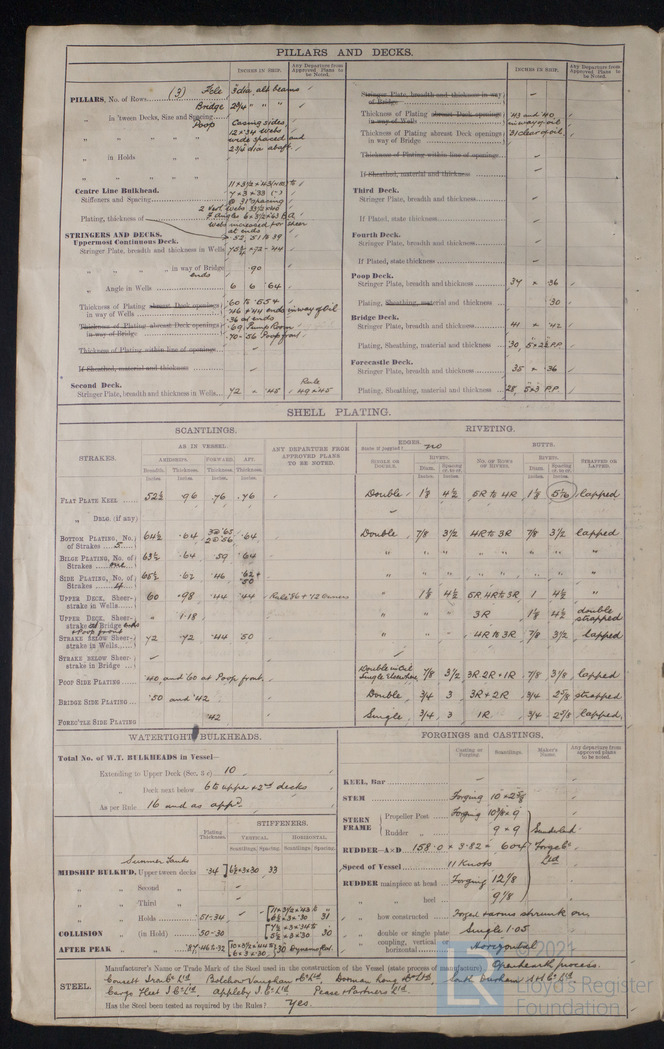 PILLARS AND DECKS.
INCHES IN SHIP.
Any Departure from Approved Plans to be Noted.
PILLARS, No. of Rows (3) Fcle 3 dia. alt beams
Bridge 2¾ " " "
" in 'tween Decks, Size and Spacing Casing sides
Poop 12 × 34 webs
" " " wide spaced and
" in Holds 2¾ dia abaft.
Centre Line Bulkhead.
Stiffeners and Spacing @ 31 spacing
Plating, thickness of
webs increased for shear
at ends
STRINGERS AND DECKS. 52, 51 to 39
Uppermost Continuous Deck.
Stringer Plate, breadth and thickness in Wells
" " " " in way of Bridge ends .90
" Angle in Wells 6 6 .64
Thickness of Plating abreast Deck openings in way of Wells .60 to .554
.46 + .44 ends in way of oil
.36 at ends
Thickness of Plating abreast Deck openings in way of Bridge .69 Pump Room
.70-.56 Poop front
Thickness of Plating within line of openings
If Sheathed, material and thickness
Second Deck. Rule
Stringer Plate, breadth and thickness in Wells 72 × .45 49 × 45
INCHES IN SHIP.
Any Departure from Approved Plans to be Noted.
Stringer Plate, breadth and thickness in way of Bridge
Thickness of Plating abreast Deck openings in way of Wells .43 and .40
in way of oil
Thickness of Plating abreast Deck openings in way of Bridge .31 clear of oil
Thickness of Plating within line of openings
If Sheathed, material and thickness
Third Deck.
Stringer Plate, breadth and thickness
If Plated, state thickness
Fourth Deck.
Stringer Plate, breadth and thickness
If Plated, state thickness
Poop Deck.
Stringer Plate, breadth and thickness 37 × .36
Plating, Sheathing, material and thickness .30
Bridge Deck.
Stringer Plate, breadth and thickness 41 × .42
Plating, Sheathing, material and thickness .30, 5 × 2½ P.P.
Forecastle Deck.
Stringer Plate, breadth and thickness 35 × .36
Plating, Sheathing, material and thickness .28, 5 × 3 P.P.
SHELL PLATING.
SCANTLINGS.
RIVETING.
STRAKES.
AS IN VESSEL.
AMIDSHIPS. FORWARD. AFT.
Breadth. Thickness. Thickness. Thickness.
Inches. Inches. Inches. Inches.
ANY DEPARTURE FROM APPROVED PLANS TO BE NOTED.
EDGES.
State if joggled? no
SINGLE OR DOUBLE.
RIVETS.
Diam. Spacing cr. to cr.
Inches. Inches.
BUTTS.
NO. OF ROWS OF RIVETS.
RIVETS.
Diam. Spacing cr. to cr.
Inches. Inches.
STRAPPED OR LAPPED.
FLAT PLATE KEEL 52½ .96 .76 .76 Double 1⅛ 4½ 5R to 4R 1⅛ lapped
" DBLG. (if any)
BOTTOM PLATING, No. of Strakes 5 64½ .64 .64 Double 7/8 3½ 4R to 3R 7/8 3½ lapped
BILGE PLATING, No. of Strakes one 63½ .64 .59 .64 " " " " " " "
SIDE PLATING, No. of Strakes 4 65½ .62 .46 .62 + .50 " " " " " " "
UPPER DECK, Sheer-strake in Wells 60 .98 .44 .44 Rule 86 + 72 Owners " 1⅛ 4½ 5R 4R to 3R 1 4½ "
UPPER DECK, Sheer-strake at Bridge ends + Poop front " 1.18 " " " 3R 1⅛ 4½ double strapped
STRAKE BELOW Sheer-strake in Wells 72 .72 .44 .50 " " " 4R to 3R 7/8 3½ lapped
STRAKE BELOW Sheer-strake in Bridge
POOP SIDE PLATING .40 and .60 at Poop front Double in Oil Single Elsewhere 7/8 3½ 3R 2R + 1R 7/8 lapped
BRIDGE SIDE PLATING .50 and .42 Double 3/4 3 3R + 2R 3/4 2⅝ strapped
FOREC'TLE SIDE PLATING .42 Single 3/4 3 1R 3/4 2⅝ lapped
WATERTIGHT BULKHEADS.
Total No. of W.T. BULKHEADS in Vessel—
Extending to Upper Deck (Sec. 3 c) 10
" Deck next below 6 to upper + 2nd decks
As per Rule 16 and as app.
Plating Thickness.
STIFFENERS.
VERTICAL. HORIZONTAL.
Scantlings. Spacing. Scantlings. Spacing.
Summer Tanks
MIDSHIP BULKH'D, Upper tween decks .34 6½ × 3 × .30 33
" " Second "
" " Third "
" " Holds .51-.34 11 × 3½ × .43 & 6½ × 3 × .30 31
COLLISION " (in Hold) .50-.30 30
AFTER PEAK " " 30
FORGINGS and CASTINGS.
Casting or Forging. Scantlings. Maker's Name. Any departure from approved plans to be noted.
KEEL, Bar
STEM Forging
STERN FRAME Propeller Post Forging 10⅞ × 9
Rudder " 9 × 9 Sunderland
RUDDER—A×D 158.0 × 3.82 = 604 Forge Co
Speed of Vessel 11 Knots Ltd
RUDDER mainpiece at head Forging 12⅛
" " heel 9⅛
" how constructed Forged + arms shrunk on
" double or single plate Single 1.05
" coupling, vertical or horizontal Horizontal
STEEL.
Manufacturer's Name or Trade Mark of the Steel used in the construction of the Vessel (state process of manufacture) Openhearth process.
Consett Iron Co Ltd Bolckow Vaughan & Co Ltd Dorman Long & Co Ltd South Durham S & I Co Ltd
Cargo Fleet I. Co Ltd Appleby I. Co Ltd Pease & Partners Ltd
Has the Steel been tested as required by the Rules? Yes.
© 2021
LR
Lloyd's Register
Foundation